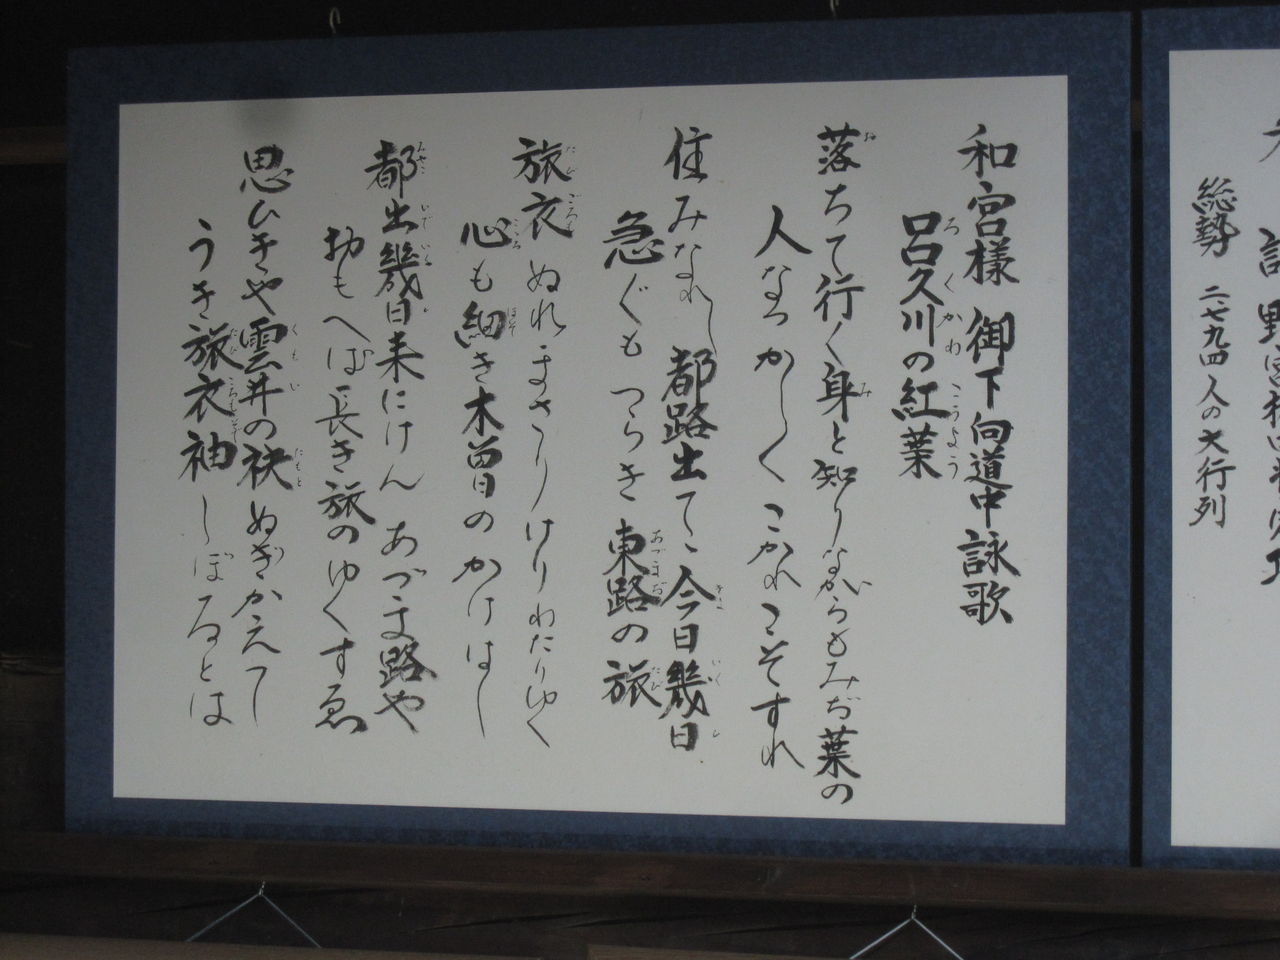 総勢 二七九四人の大行列
和宮様 御下向道中詠歌
呂久川の紅葉
落ちて行く身と知りながらもみぢ葉の
人なつかしくこかれこそすれ
住みなれし都路出てゝ今日幾日
急ぐもつらき東路の旅
旅衣ぬれまさりけりわたりゆく
心も細き木曽のかけはし
都出幾日来にけんあづま路や
おもへば長き旅のゆくすゑ
思ひきや雲井の袂ぬぎかえし
うき旅衣袖しぼるとは